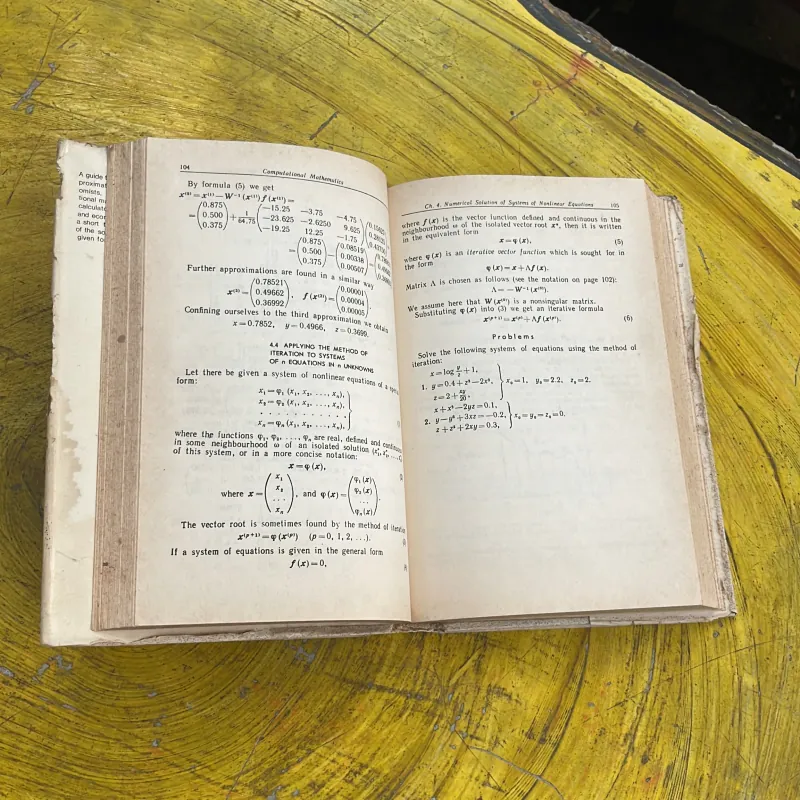 A guide
proximat
omists,
tional m
calculat
and econ
a short
of the so
given fo
104 Computational Mathematics
By formula (5) we get
x⁽²⁾=x⁽¹⁾−W⁻¹ (x⁽¹⁾) f (x⁽¹⁾)=
=(0.875 0.500 0.375)+1/64.75(−15.25 −3.75 −4.75
−23.625 −2.6250 9.625
−19.25 12.25 −1.75)
=(0.875 0.500 0.375)−(0.08519 0.00338 0.00507)
Further approximations are found in a similar way
x⁽³⁾=(0.78521 0.49662 0.36992), f (x⁽³⁾)=(0.00001 0.00004 0.00005)
Confining ourselves to the third approximation we obtain
x=0.7852, y=0.4966, z=0.3699.
4.4 APPLYING THE METHOD OF
ITERATION TO SYSTEMS
OF n EQUATIONS IN n UNKNOWNS
Let there be given a system of nonlinear equations of a
form:
x₁=φ₁ (x₁, x₂, ..., xₙ),
x₂=φ₂ (x₁, x₂, ..., xₙ),
. . . . . . . . . .
xₙ=φₙ (x₁, x₂, ..., xₙ),
where the functions φ₁, φ₂, ..., φₙ are real, defined and
in some neighbourhood ω of an isolated solution
of this system, or in a more concise notation:
x=φ (x),
where x=(x₁ x₂ ... xₙ), and φ (x)=(φ₁ (x) φ₂ (x) ... φₙ (x)).
The vector root is sometimes found by the method of
x⁽ᵖ⁺¹⁾=φ (x⁽ᵖ⁾) (p=0, 1, 2, ...).
If a system of equations is given in the general form
f (x)=0,
Ch. 4. Numerical Solution of Systems of Nonlinear Equations 105
where f (x) is the vector function defined and continuous in the
neighbourhood ω of the isolated vector root x*, then it is written
in the equivalent form
x=φ (x), (5)
where φ (x) is an iterative vector function which is sought for in
the form
φ (x)=x+Λf (x).
Matrix Λ is chosen as follows (see the notation on page 102):
Λ=−W⁻¹ (x⁽⁰⁾).
We assume here that W (x⁽⁰⁾) is a nonsingular matrix.
Substituting φ (x) into (3) we get an iterative formula
x⁽ᵖ⁺¹⁾=x⁽ᵖ⁾+Λf (x⁽ᵖ⁾). (6)
Problems
Solve the following systems of equations using the method of
iteration:
x=log y/z+1,
1. y=0.4+z²−2x², } x₀=1, y₀=2.2, z₀=2.
z=2+xy/20,
x+x²−2yz=0.1,
2. y−y²+3xz=−0.2, } x₀=y₀=z₀=0.
z+z²+2xy=0.3,